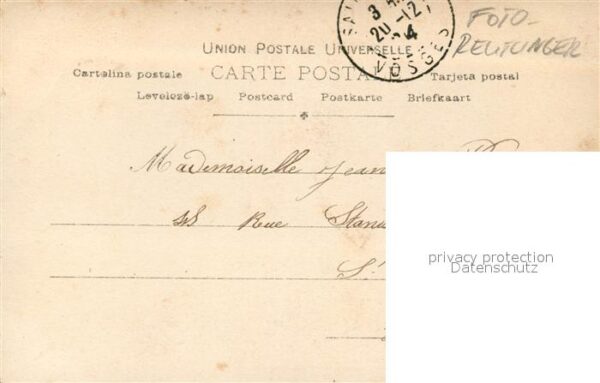 UNION POSTALE UNIVERSELLE
Cartolina postale CARTE POSTALE Tarjeta postal
Levelező-lap Postcard Postkarte Briefkaart
20-12
4
VOSGES
FOTO-
Mademoiselle Jean
Rue Stani
St
privacy protection
Datenschutz